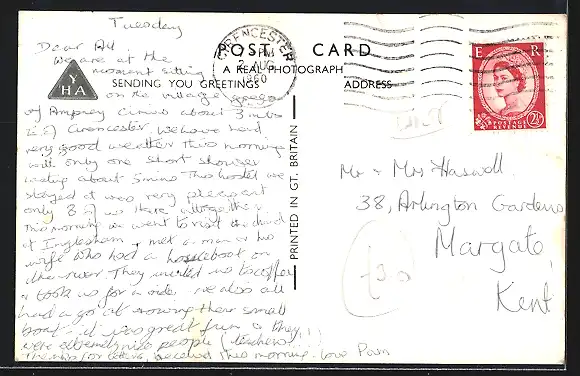 Tuesday
Dear All,
We are at the
moment sitting
on the village green
of Ampney Crucis about 3 miles
(E) Cirencester. We have had
very good weather this morning
with only one short shower
lasting about 5 mins. This hostel we
stayed at was very pleasant
only 8 of us there altogether
This morning we went to visit the church
at Inglesham, met a man & his
wife who had a houseboat on
the river. They invited us to coffee
& took us for a ride. We also all
had a go at rowing their small
boat. it was great fun & they
were extremely nice people (teachers)
Thanks for letters, received this morning. love Pam
YHA
POST CARD
A REAL PHOTOGRAPH
SENDING YOU GREETINGS
ADDRESS
CIRENCESTER
PM
2 AUG
1960
PRINTED IN GT. BRITAIN
E R
POSTAGE
REVENUE
2½
Mr & Mrs Haswell
38, Arlington Gardens
Margate,
Kent